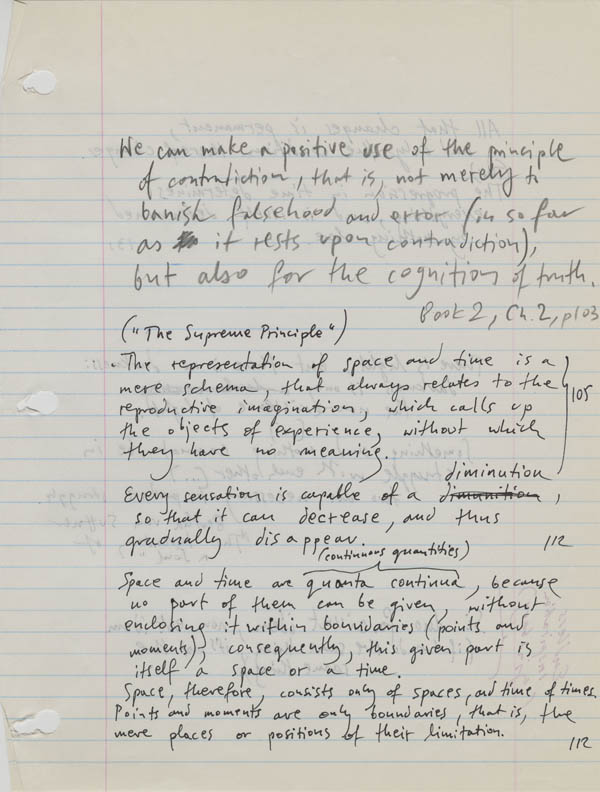 We can make a positive use of the principle
of contradiction, that is, not merely to
banish falsehood and error (in so far
as it rests upon contradiction),
but also for the cognition of truth.
Book 2, Ch. 2, p103
("The Supreme Principle")
The representation of space and time is a
mere schema, that always relates to the
reproductive imagination, which calls up
the objects of experience, without which
they have no meaning.
105
diminution
Every sensation is capable of a dimunition,
so that it can decrease, and thus
gradually disappear.
112
(continuous quantities)
Space and time are quanta continua, because
no part of them can be given, without
enclosing it within boundaries (points and
moments), consequently, this given part is
itself a space or a time.
Space, therefore, consists only of spaces, and time of times.
Points and moments are only boundaries, that is, the
mere places or positions of their limitation.
112